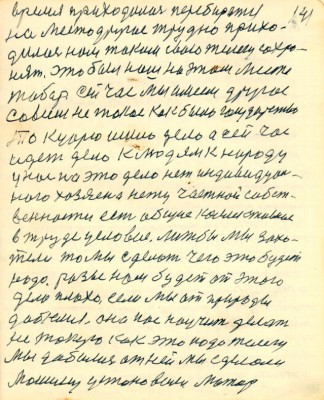 141
время приходилося перебирати
на место другое трудно прихо-
дилося нам таким свою телегу сохро-
нят. Это был наш на этом месте
табор сей час мы имеем другое
совсем не такое как было государство
То купоршино дело а сей час
идет дело к людям к народу
у нас на это дело нет индивидуал-
ного хозяена нету частной собст-
венности ест общие коллективние
в труде условие. Хотжбы мы захо-
тели то мы сделаем чего это будет
надо. разве нам будет от этого
дела плохо, если мы от природы
добъемся. она нас научит делат
не такую как это надо телегу
мы добилися от ней мы сделали
машину установили мотор